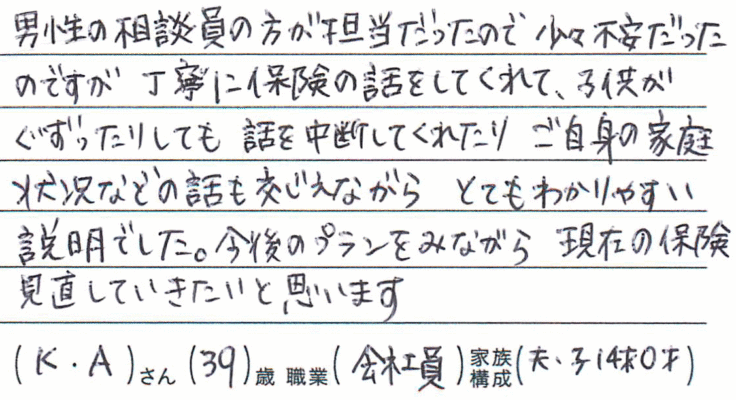 男性の相談員の方が担当だったので 少々不安だった
のですが 丁寧に保険の話をしてくれて、子供が
ぐずったりしても 話を中断してくれたり ご自身の家庭
状況などの話も交じえながら とてもわかりやすい
説明でした。今後のプランをみながら 現在の保険
見直していきたいと思います
(K・A)さん (39)歳 職業(会社員)家族構成(夫・子14才0才)